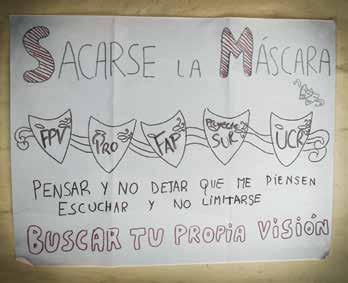 SACARSE LA MÁSCARA
FPV PRO FAP PROYECTO SUR UCR
PENSAR Y NO DEJAR QUE ME PIENSEN
ESCUCHAR Y NO LIMITARSE
BUSCAR TU PROPIA VISIÓN